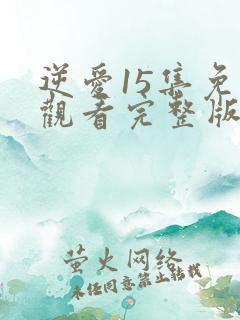 逆愛15集免
觀看完整版
萤火网络
未经同意禁止转载